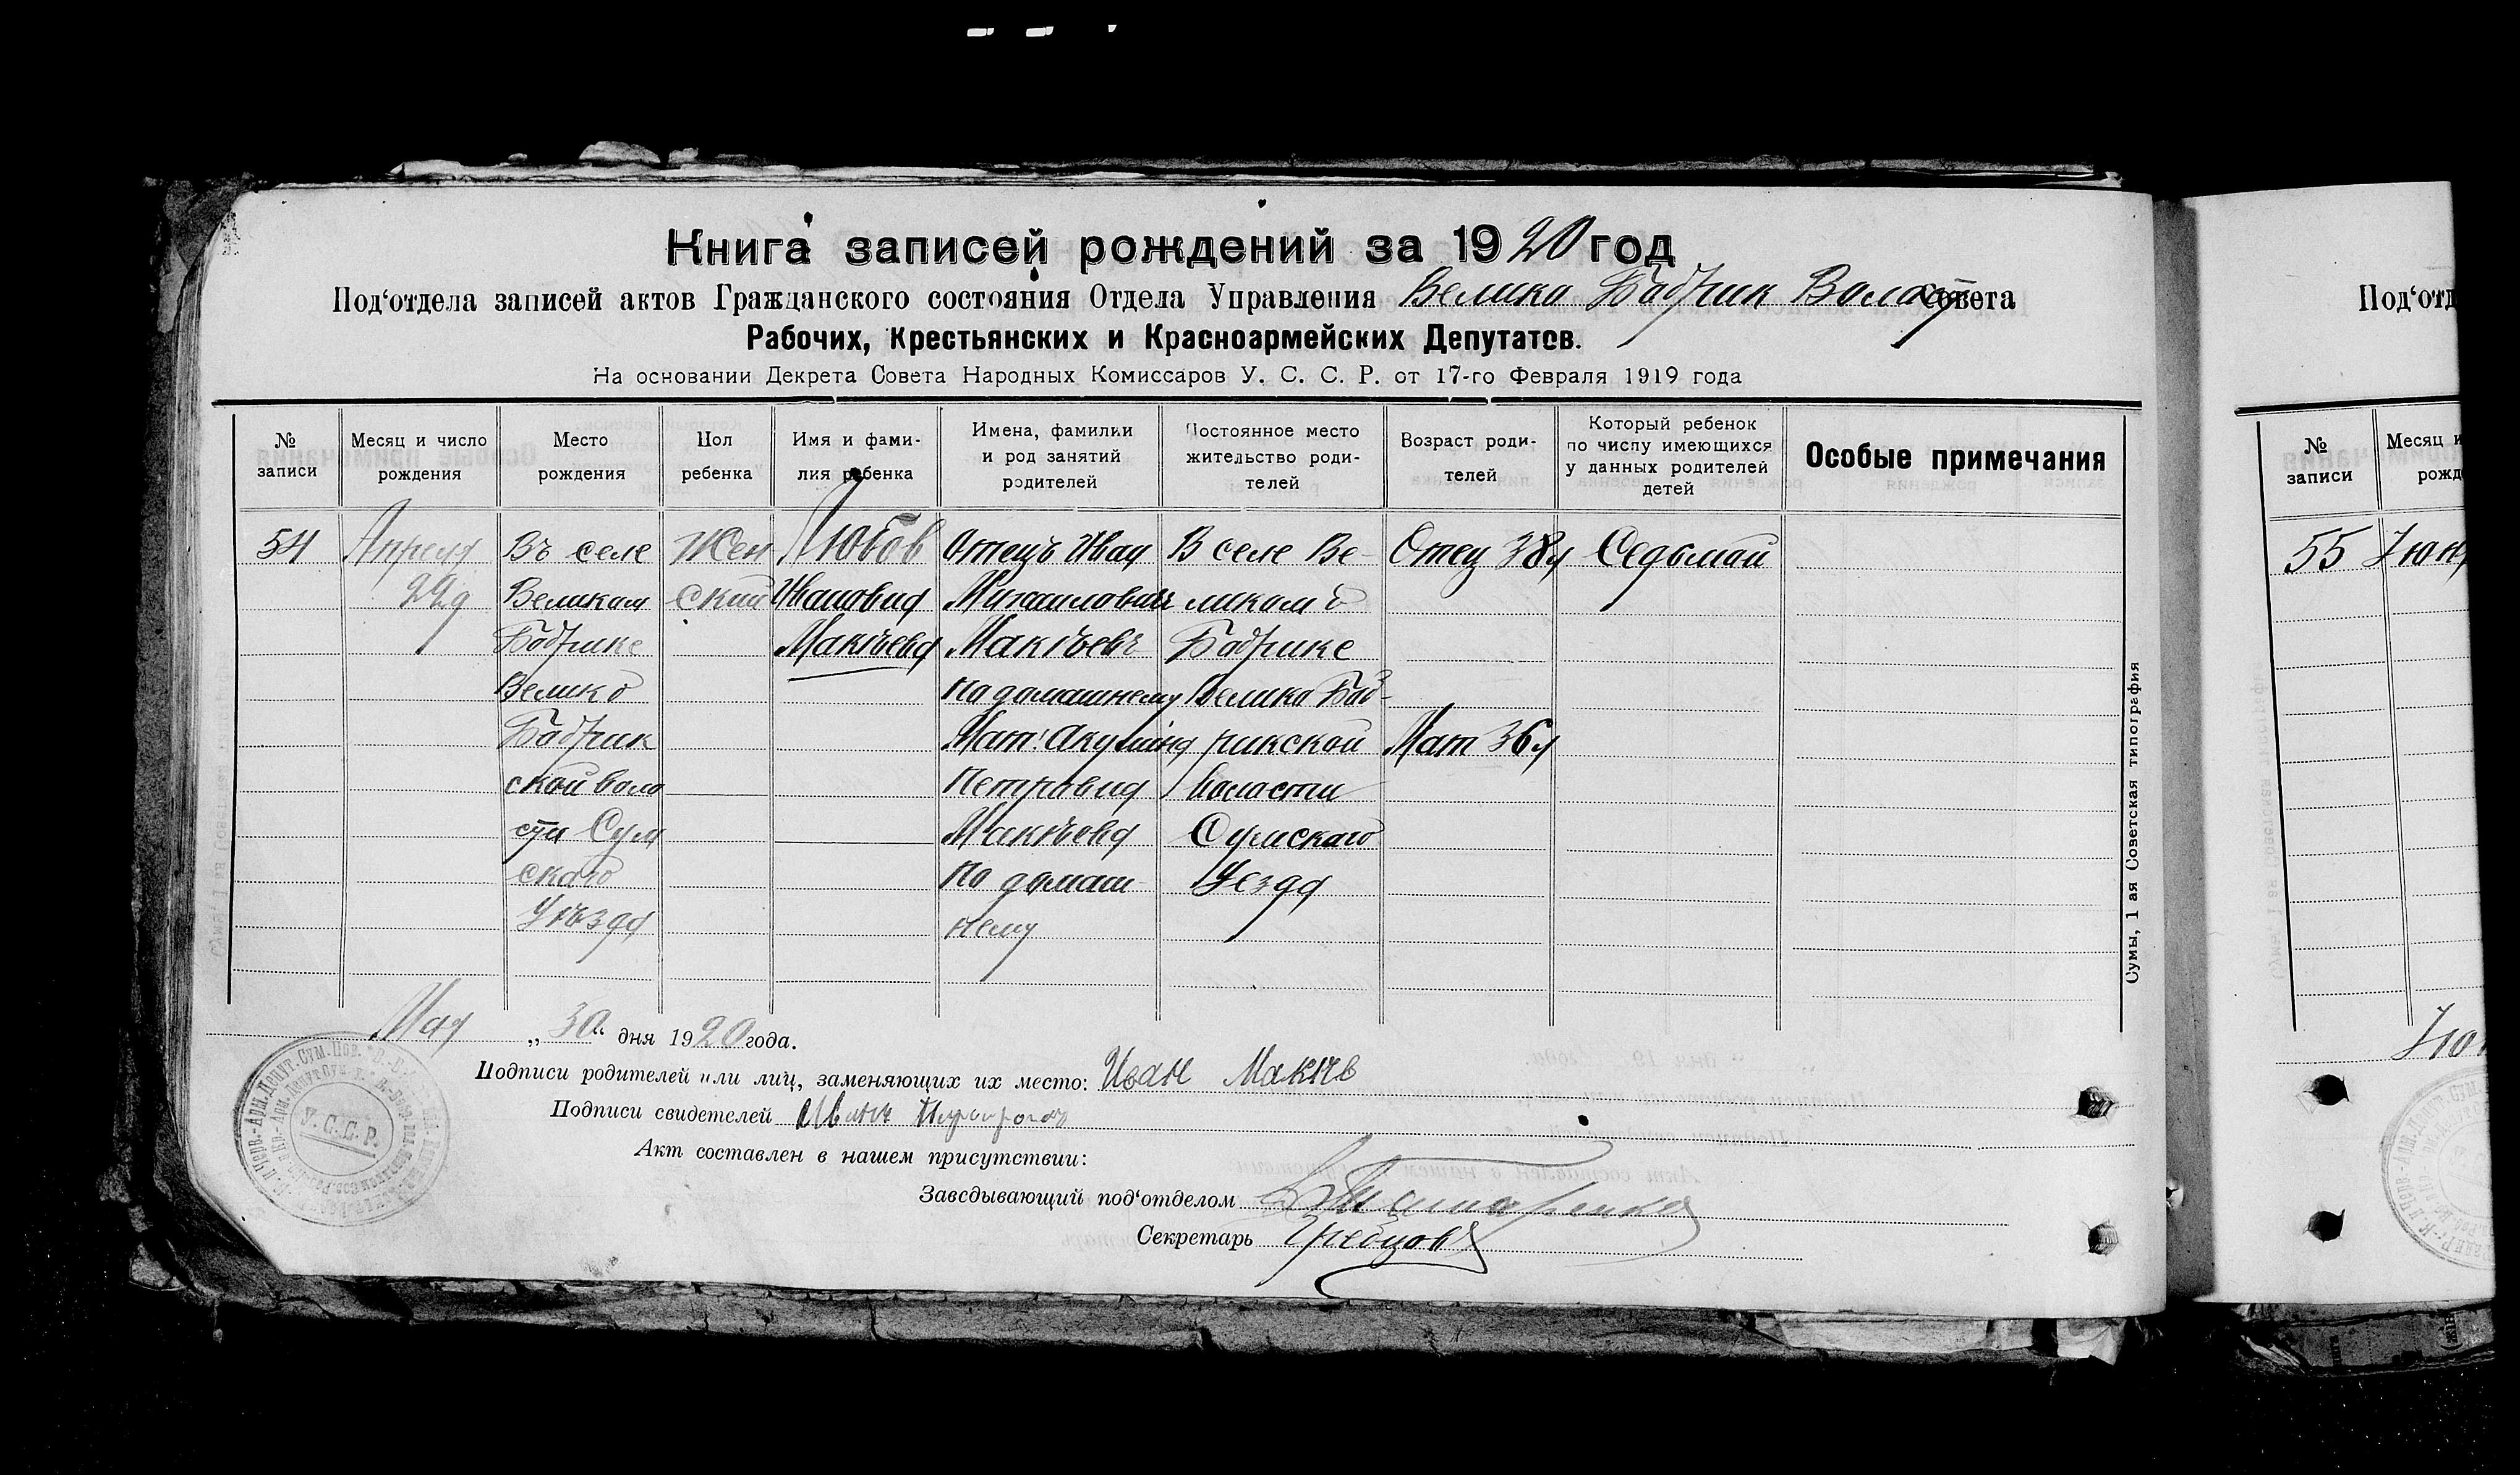 Книга записей рождений за 1920 год
Под‘отдела записей актов Гражданского состояния Отдела Управления Велико Бобрик Волост Совета
Рабочих, Крестьянских и Красноармейских Депутатов.
На основании Декрета Совета Народных Комиссаров У. С. С. Р. от 17-го Февраля 1919 года
№ записи
Месяц и число рождения
Место рождения
Пол ребенка
Имя и фамилия ребенка
Имена, фамилии и род занятий родителей
Постоянное место жительство родителей
Возраст родителей
Который ребенок по числу имеющихся у данных родителей детей
Особые примечания
54
Апреля
22д
Въ селе
Великом
Бобрике
Велико
Бобрик
ской воло
сти Сум
скаго
Уѣзда
Жен
ский
Любов
Ивановна
Макѣева
Отецъ Иван
Михаиловичъ
Макѣевъ
по домашнему
Мат: Акулина
Петровна
Макѣева
по домаш
нему
В селе Ве-
ликом
Бобрике
Велико Боб-
рикской
Воласти
Сумскаго
Уезда
Отец 38 л
Мат 36 л
Седьмой
Мая „30“ дня 1920 года.
Подписи родителей или лиц, заменяющих их место: Иван Макѣв
Подписи свидетелей Иванъ
Акт составлен в нашем присутствии:
Заведывающий под‘отделом
Секретарь Гребцовъ
У.С.С.Р.
Сумы, 1 ая Советская типография
Под‘отд
№ записи
Месяц и
рожд
55
Июн
Июн